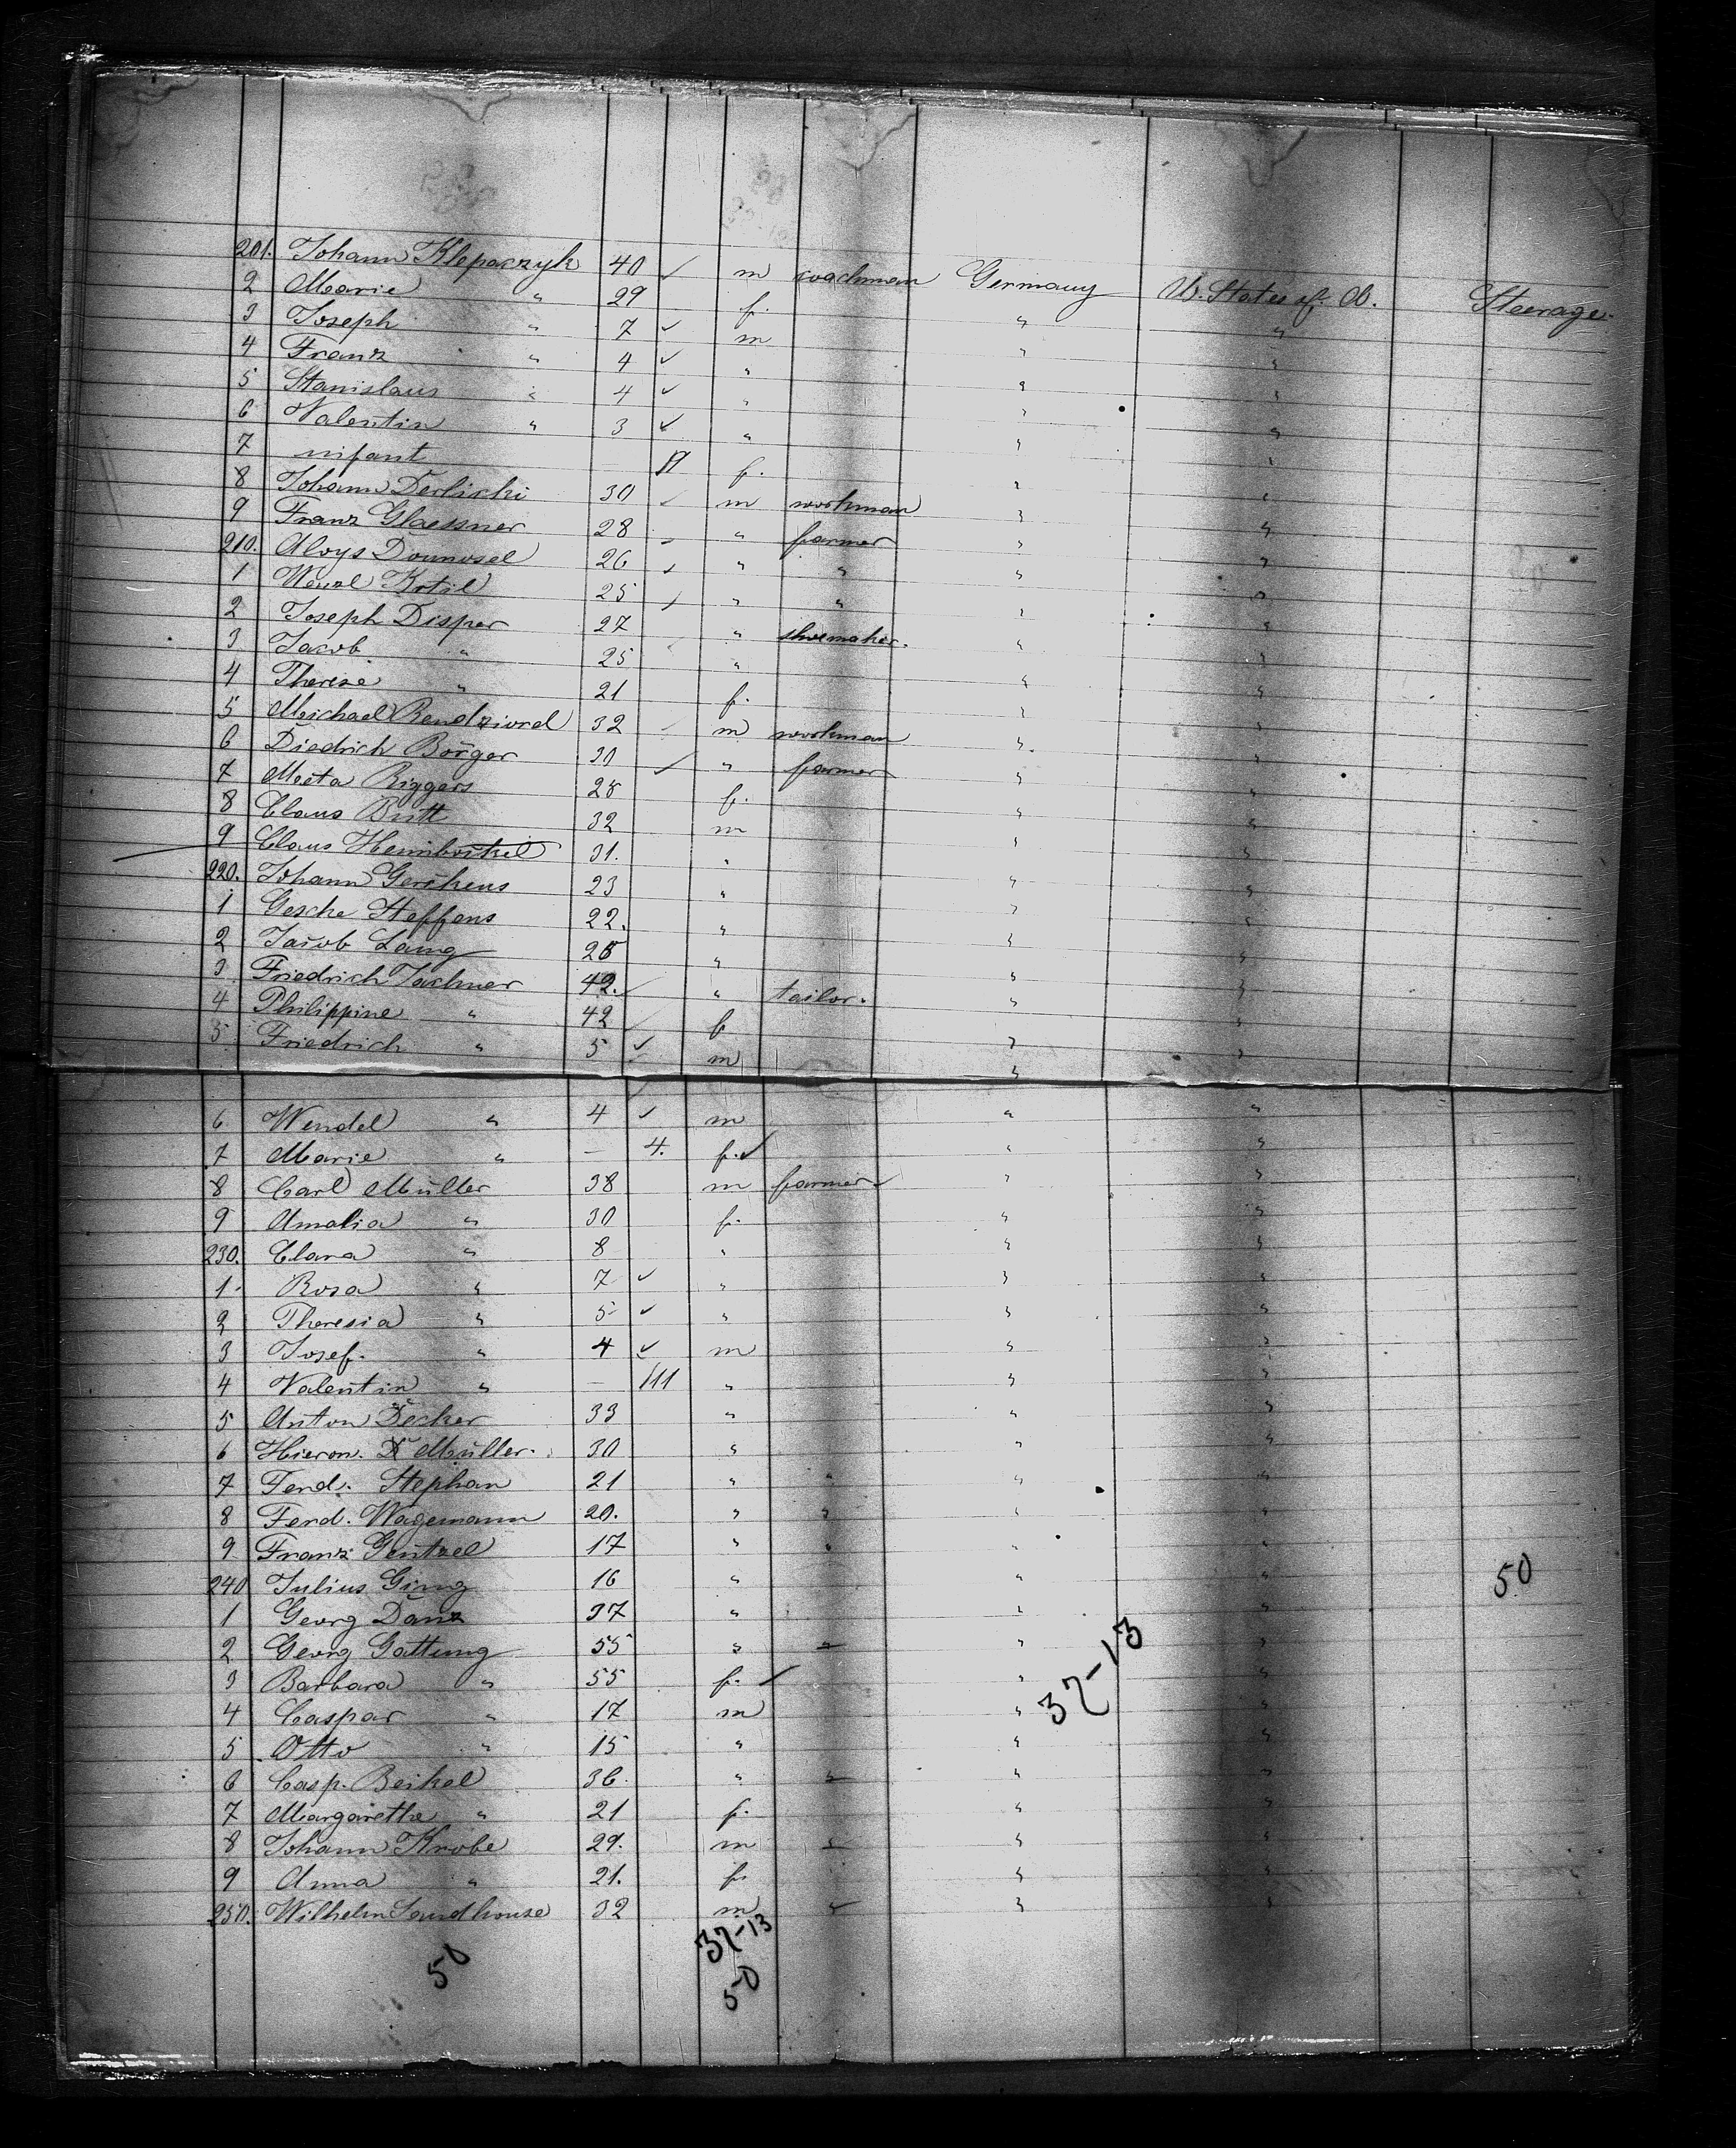 201. Johann Klepaczyk 40 ✓ m coachman Germany U. States of A. Steerage.
2 Marie " 29 f. " "
3 Joseph " 7 ✓ m " "
4 Franz " 4 ✓ " " "
5 Stanislaus " 4 ✓ " " "
6 Valentin " 3 ✓ " " "
7 infant — f. " "
8 Johann Derlicki 30 ✓ m workman " "
9 Franz Glaessner 28 " farmer " "
210. Aloys 26 ✓ " " " "
1 Wenzl Krtil 25 ✓ " " " "
2 Joseph Disper 27 " shoemaker. " "
3 Jacob " 25 " " "
4 Therese " 21 f. " "
5 Michael 32 m workman " "
6 Diedrich Borger 30 ✓ " farmer " "
7 Meta Riggers 28 f. " "
8 Claus Butt 32 m " "
9 Claus 31. " " "
220. Johann Gerckens 23 " " "
1 Gesche Steffens 22. " " "
2 Jacob Lang 28 " " "
3 Friedrich Jachner 42. ✓ " tailor. " "
4 Philippine " 42 f " "
5 Friedrich " 5 ✓ m " "
6 Wendel " 4 ✓ m " "
7 Marie " — 4. f. ✓ "  "
8 Carl Müller 38 m farmer " "
9 Amalia " 30 f. " "
230. Clara " 8 " " "
1. Rosa " 7 ✓ " " "
2 Theresia " 5 ✓ " " "
3 Josef. " 4 ✓ m " "
4 Valentin " — " " "
5 Anton Decker 33 " " "
6 Hieron. Müller. 30 " " "
7 Ferd. Stephan 21 " " " "
8 Ferd. Wagemann 20. " " " "
9 Franz Gentzel 17 " " " "
240 Julius Ging 16 " " " 50
1 Georg Danz 37 " " "
2 Georg Gattung 55 " " " "
3 Barbara " 55 f. ✓ " "
37-13
4 Caspar " 17 m " "
5 Otto " 15 " " "
6 Casp. Beikel 36. " " " "
7 Margarethe " 21 f. " "
8 Johann Krobe 29. m " " "
9 Anna " 21. f. " "
250. Wilhelm Sandhouse 32 m " " "
37-13
50 50